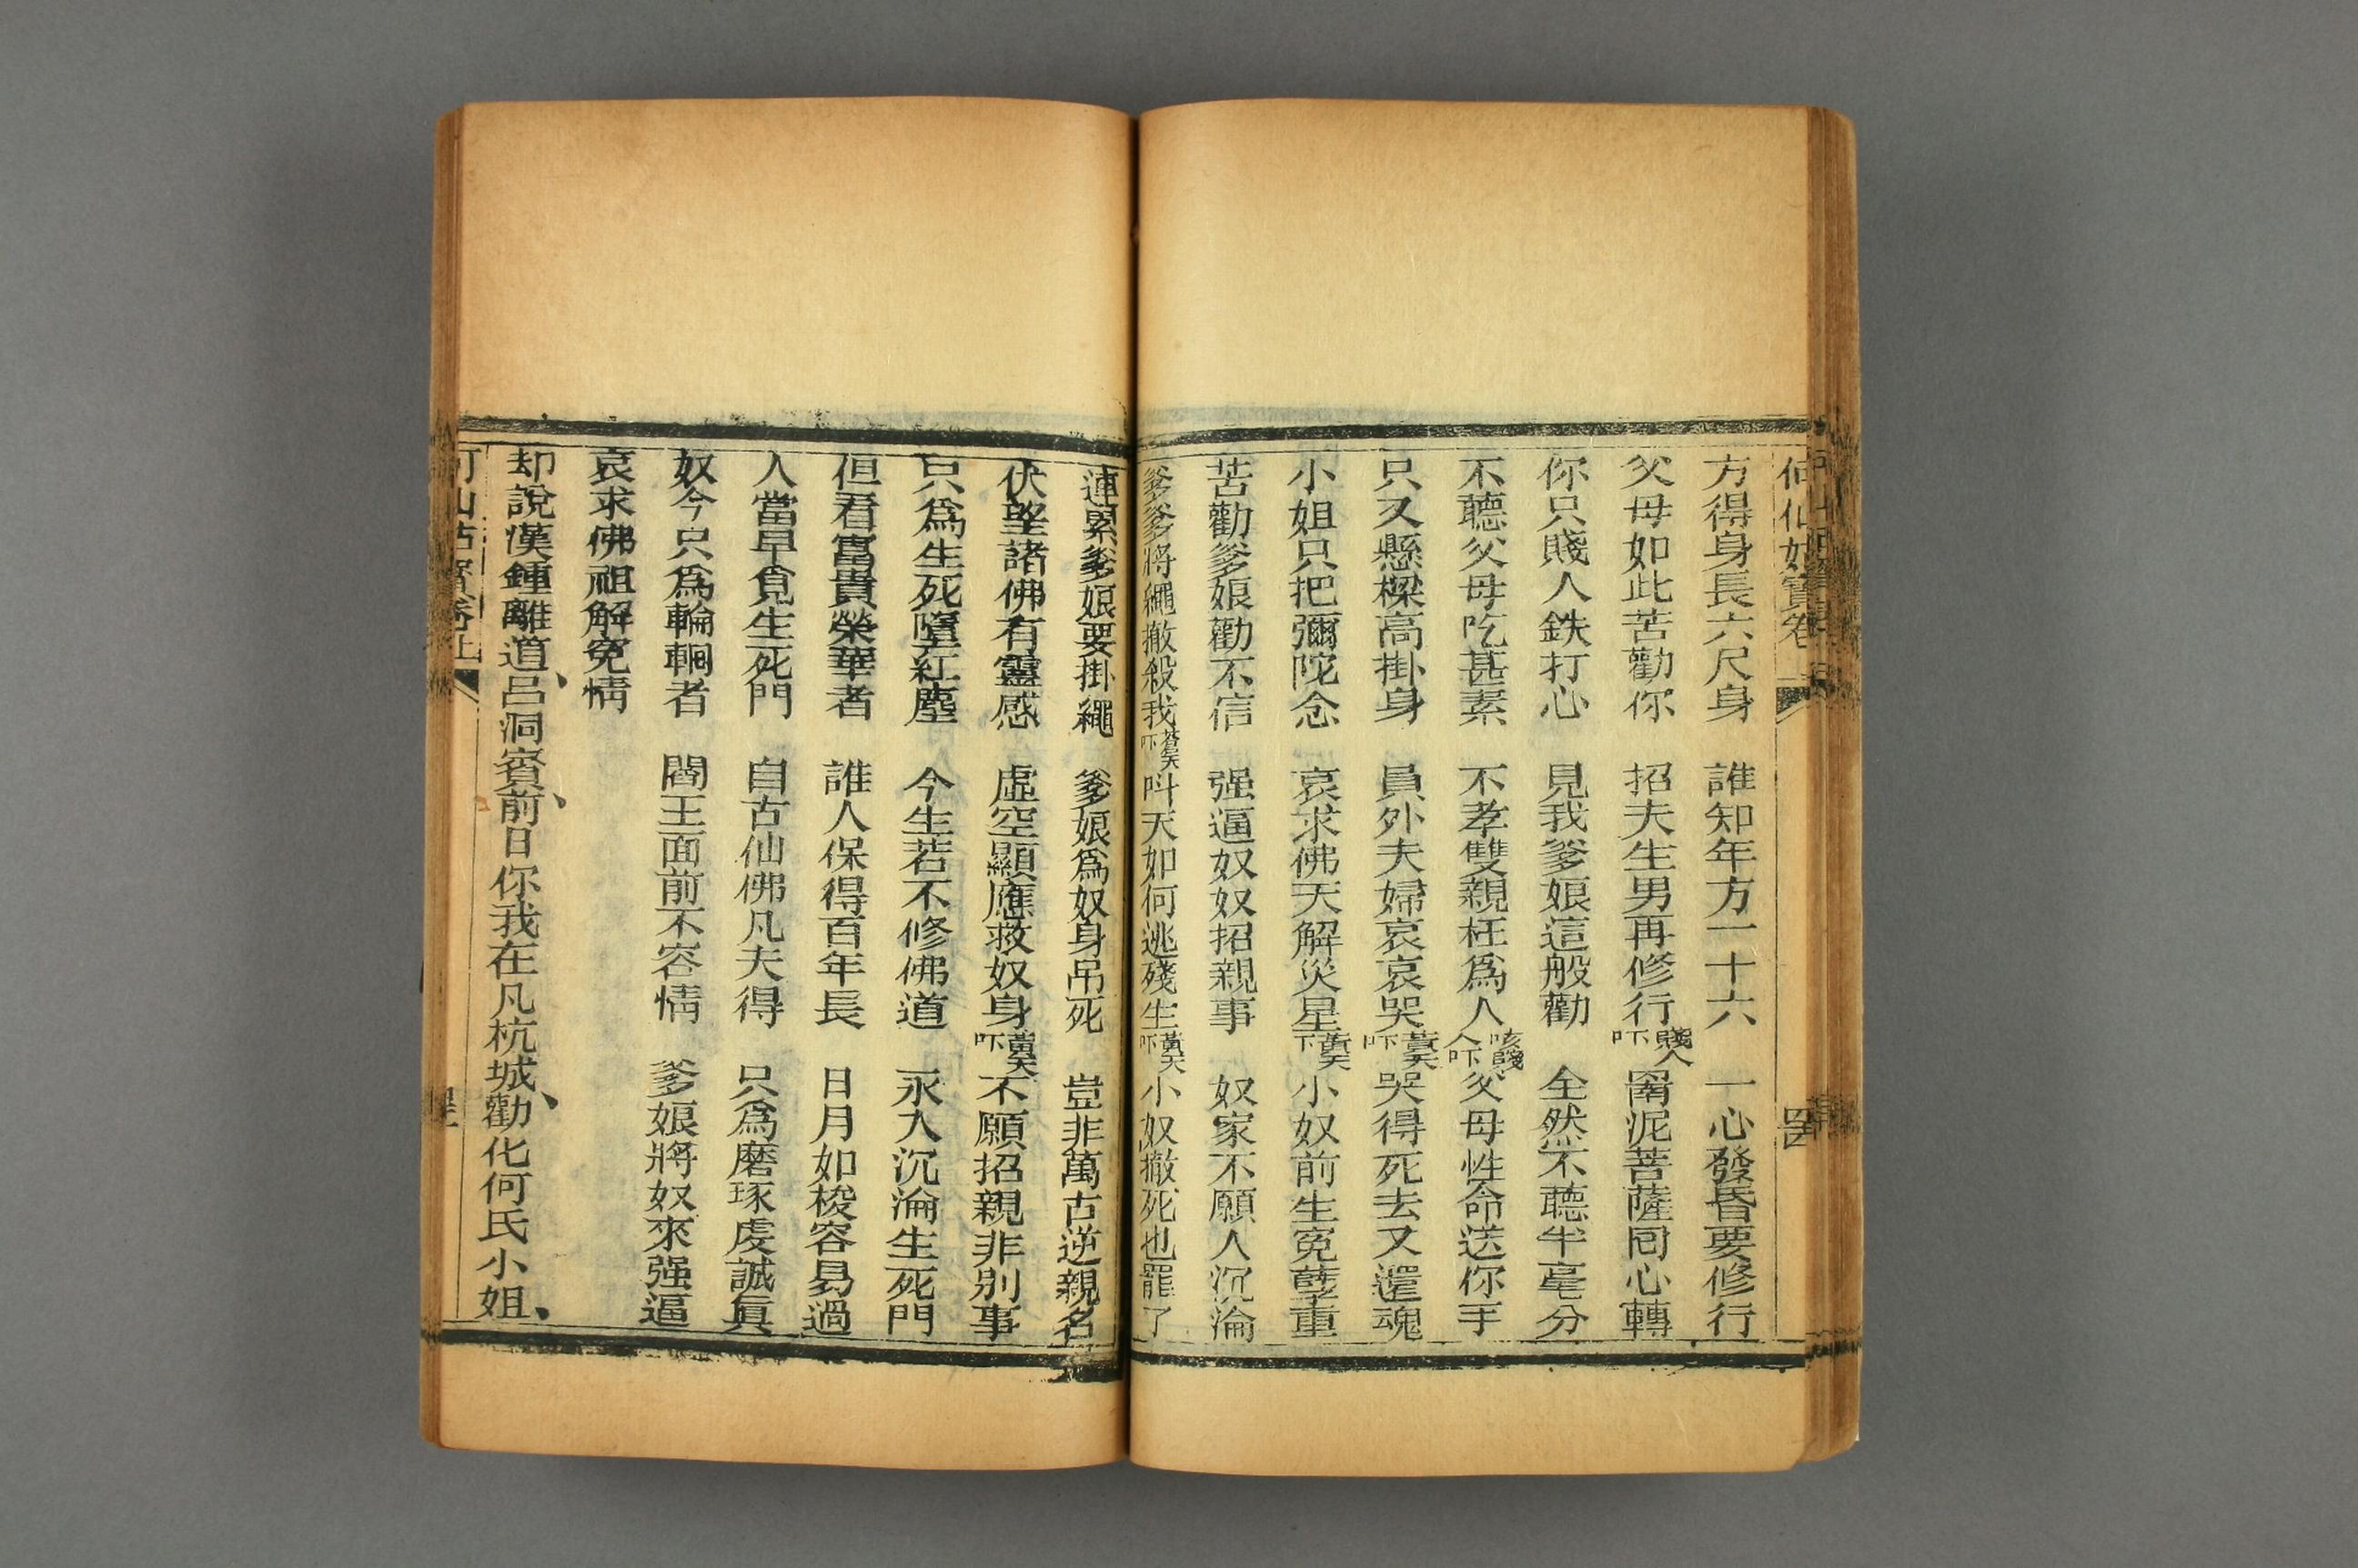 何仙姑寶卷
方得身長六尺身　誰知年方一十六　一心發昏要修行
父母如此苦勸你　招夫生男再修行賤人吓　罱泥菩薩同心轉
你只賤人鉄打心　見我爹娘這般勸　全然不聽半毫分
不聽父母吃甚素　不孝雙親枉爲人咳賤人吓　父母性命送你手
只又懸樑高掛身　員外夫婦哀哀哭蒼天吓　哭得死去又還魂
小姐只把彌陀念　哀求佛天解災星蒼天下　小奴前生冤孽重
苦勸爹娘勸不信　强逼奴奴招親事　奴家不願人沉淪
爹爹將繩撤殺我蒼天吓　呌天如何逃殘生黃天吓　小奴撤死也罷了
連累爹娘要掛繩　爹娘爲奴身吊死　豈非萬古逆親名
伏望諸佛有靈感　虛空顯應救奴身黃天吓　不願招親非別事
只爲生死墮紅塵　今生若不修佛道　永入沉淪生死門
但看富貴榮華者　誰人保得百年長　日月如梭容易過
人當早覓生死門　自古仙佛凡夫得　只爲磨琢虔誠眞
奴今只爲輪輞者　閻王面前不容情　爹娘將奴來强逼
哀求佛祖解冤情
却說漢鍾離道、呂洞賓、前日你我在凡杭城、勸化何氏小姐、